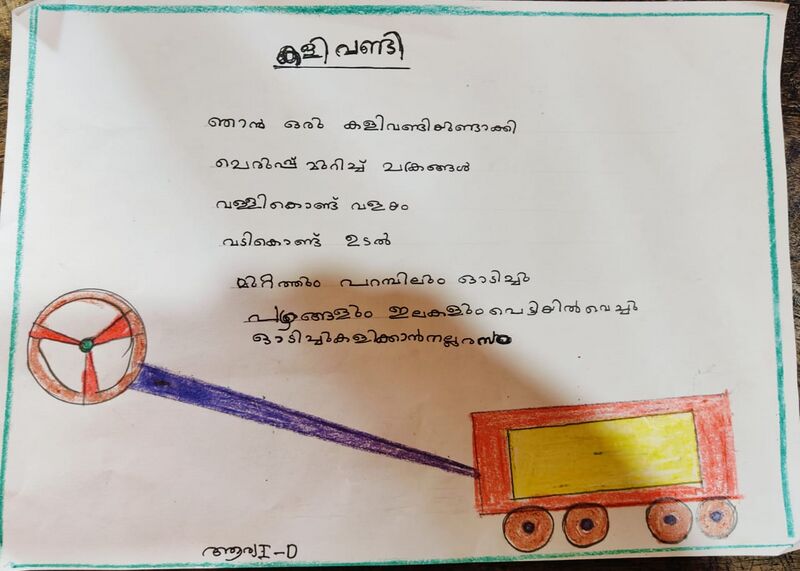 കളിവണ്ടി
ഞാൻ ഒരു കളിവണ്ടിയുണ്ടാക്കി
ചെരുപ്പ് മുറിച്ച് ചക്രങ്ങൾ
വള്ളികൊണ്ട് വളയം
വടികൊണ്ട് ഉടൽ
മുറ്റത്തും പറമ്പിലും ഓടിച്ചു
പഴങ്ങളും ഇലകളും പെട്ടിയിൽ വെച്ചു
ഓടിച്ചുകളിക്കാൻ നല്ല രസം
ആര്യ I-D